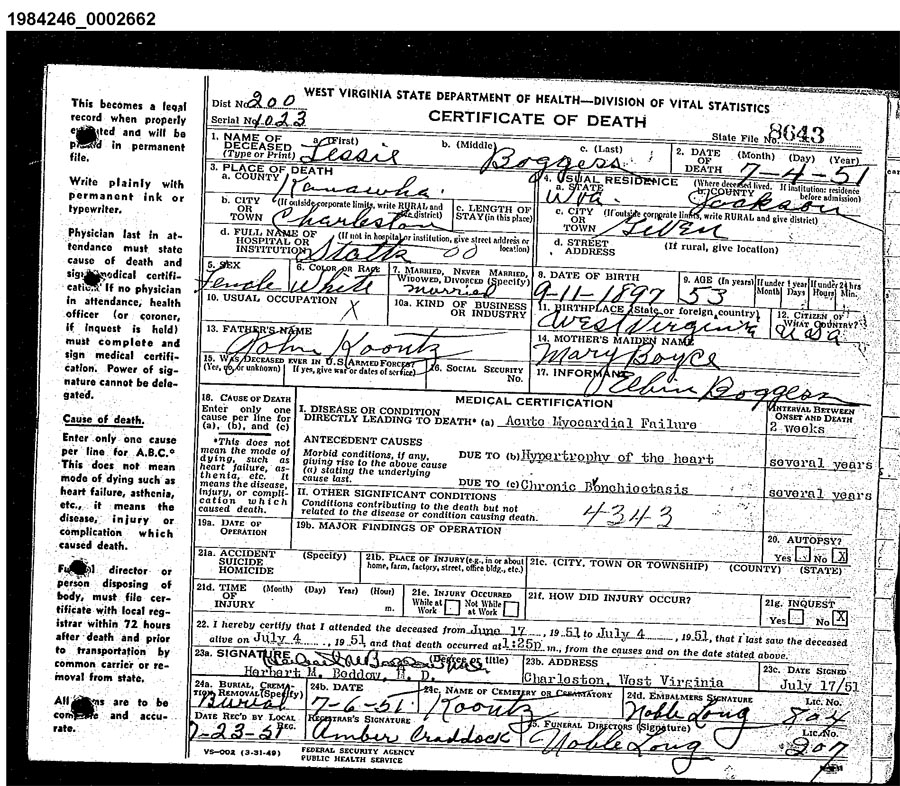 1984246_0002662
WEST VIRGINIA STATE DEPARTMENT OF HEALTH—DIVISION OF VITAL STATISTICS
CERTIFICATE OF DEATH
Dist No. 200
Serial No. 1023
State File No. 8643
This becomes a legal
record when properly
and will be
in permanent
file.
Write plainly with
permanent ink or
typewriter.
Physician last in at-
tendance must state
cause of death and
sign medical certifi-
cation. If no physician
in attendance, health
officer (or coroner,
if inquest is held)
must complete and
sign medical certifi-
cation. Power of sig-
nature cannot be dele-
gated.
Cause of death.
Enter only one cause
per line for A.B.C.*
This does not mean
mode of dying such as
heart failure, asthenia,
etc., it means the
disease, injury or
complication which
caused death.
Funeral director or
person disposing of
body, must file cer-
tificate with local reg-
istrar within 72 hours
after death and prior
to transportation by
common carrier or re-
moval from state.
All items are to be
complete and accu-
rate.
1. NAME OF DECEASED (Type or Print)
a. (First) Lessie
b. (Middle)
c. (Last) Boggess
2. DATE OF DEATH (Month) (Day) (Year) 7-4-51
3. PLACE OF DEATH
a. COUNTY Kanawha
4. USUAL RESIDENCE (Where deceased lived. If institution: residence before admission)
a. STATE W Va.
b. COUNTY Jackson
b. CITY OR TOWN (If outside corporate limits, write RURAL and give district) Charleston
c. LENGTH OF STAY (in this place)
c. CITY OR TOWN (If outside corporate limits, write RURAL and give district)
d. FULL NAME OF HOSPITAL OR INSTITUTION (If not in hospital or institution, give street address or location)
d. STREET ADDRESS (If rural, give location)
5. SEX Female
6. COLOR OR RACE White
7. MARRIED, NEVER MARRIED, WIDOWED, DIVORCED (Specify) married
8. DATE OF BIRTH 9-11-1897
9. AGE (In years) 53
If under 1 year Month Days
If under 24 hrs Hours Min.
10. USUAL OCCUPATION X
10a. KIND OF BUSINESS OR INDUSTRY
11. BIRTHPLACE (State or foreign country) West Virginia
12. CITIZEN OF WHAT COUNTRY? USA
13. FATHER'S NAME John Koontz
14. MOTHER'S MAIDEN NAME Mary Boyce
15. WAS DECEASED EVER IN U.S. ARMED FORCES? (Yes, no, or unknown) If yes, give war or dates of service)
16. SOCIAL SECURITY No.
17. INFORMANT Elbin Boggess
MEDICAL CERTIFICATION
18. CAUSE OF DEATH
Enter only one cause per line for (a), (b), and (c)
*This does not mean the mode of dying, such as heart failure, asthenia, etc. It means the disease, injury, or complication which caused death.
INTERVAL BETWEEN ONSET AND DEATH
I. DISEASE OR CONDITION DIRECTLY LEADING TO DEATH* (a) Acute Myocardial Failure 2 weeks
ANTECEDENT CAUSES
Morbid conditions, if any, giving rise to the above cause (a) stating the underlying cause last.
DUE TO (b) Hypertrophy of the heart several years
DUE TO (c) Chronic Bonchiectasis several years
II. OTHER SIGNIFICANT CONDITIONS
Conditions contributing to the death but not related to the disease or condition causing death.
4343
19a. DATE OF OPERATION
19b. MAJOR FINDINGS OF OPERATION
20. AUTOPSY? Yes No X
21a. ACCIDENT SUICIDE HOMICIDE (Specify)
21b. PLACE OF INJURY (e.g., in or about home, farm, factory, street, office bldg., etc.)
21c. (CITY, TOWN OR TOWNSHIP) (COUNTY) (STATE)
21d. TIME OF INJURY (Month) (Day) (Year) (Hour) m.
21e. INJURY OCCURRED While at Work Not While at Work
21f. HOW DID INJURY OCCUR?
21g. INQUEST Yes No X
22. I hereby certify that I attended the deceased from June 17, 1951 to July 4, 1951, that I last saw the deceased
alive on July 4, 1951, and that death occurred at 1:25p m., from the causes and on the date stated above.
23a. SIGNATURE (Degree or title)
Herbert M. Beddow, M. D.
23b. ADDRESS
Charleston, West Virginia
23c. DATE SIGNED
July 17/51
24a. BURIAL, CREMATION REMOVAL (Specify) Burial
24b. DATE 7-6-51
24c. NAME OF CEMETERY OR CREMATORY Koontz
24d. EMBALMERS SIGNATURE Noble Long
LIC. NO. 804
DATE REC'D BY LOCAL REG. 7-23-51
REGISTRAR'S SIGNATURE Amber Craddock
25. FUNERAL DIRECTORS (Signature) Noble Long
LIC. NO. 207
VS-002 (3-31-49)
FEDERAL SECURITY AGENCY
PUBLIC HEALTH SERVICE